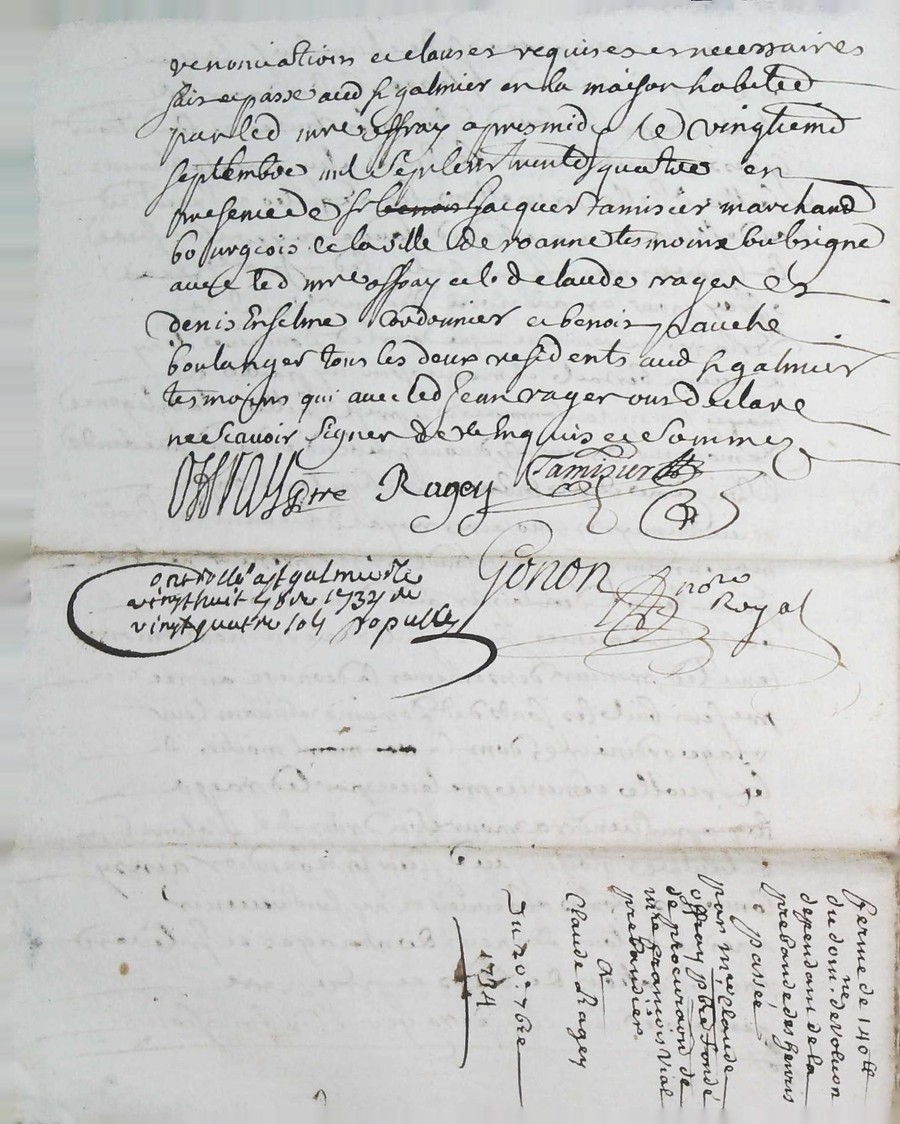 renonciations et clauses requises et necessaires
fait et passé aud st galmier en la maison habitée
par led mre offray apres midy le vingtieme
septembre mil sept cent trente quatre en
presence de sr benoist Jacques tamisier marchand
bourgeois de la ville de roanne tesmoins soubsigné
avec led mre offray et led claude ragey et
denis Enselme cordonnier et benoist
boulanger tous les deux residents aud st galmier
tesmoins qui avec led Jean ragey ont declaré
ne scavoir signer de ce enquis et sommez
Offray ptre Ragey Tamizier
Gonon nore Royal
Controllé a st galmier le
vingt huit 7bre 1734 Reçu
vingt quatre sols
ferme de 140 tt
du domne de voluon
dependant de la
prebande des henris
passée
par mre Claude
offray ptre fondé
de procuraon de
mre francois Vial
prebandier
A
Claude Ragey
Du 20e 7bre
1734